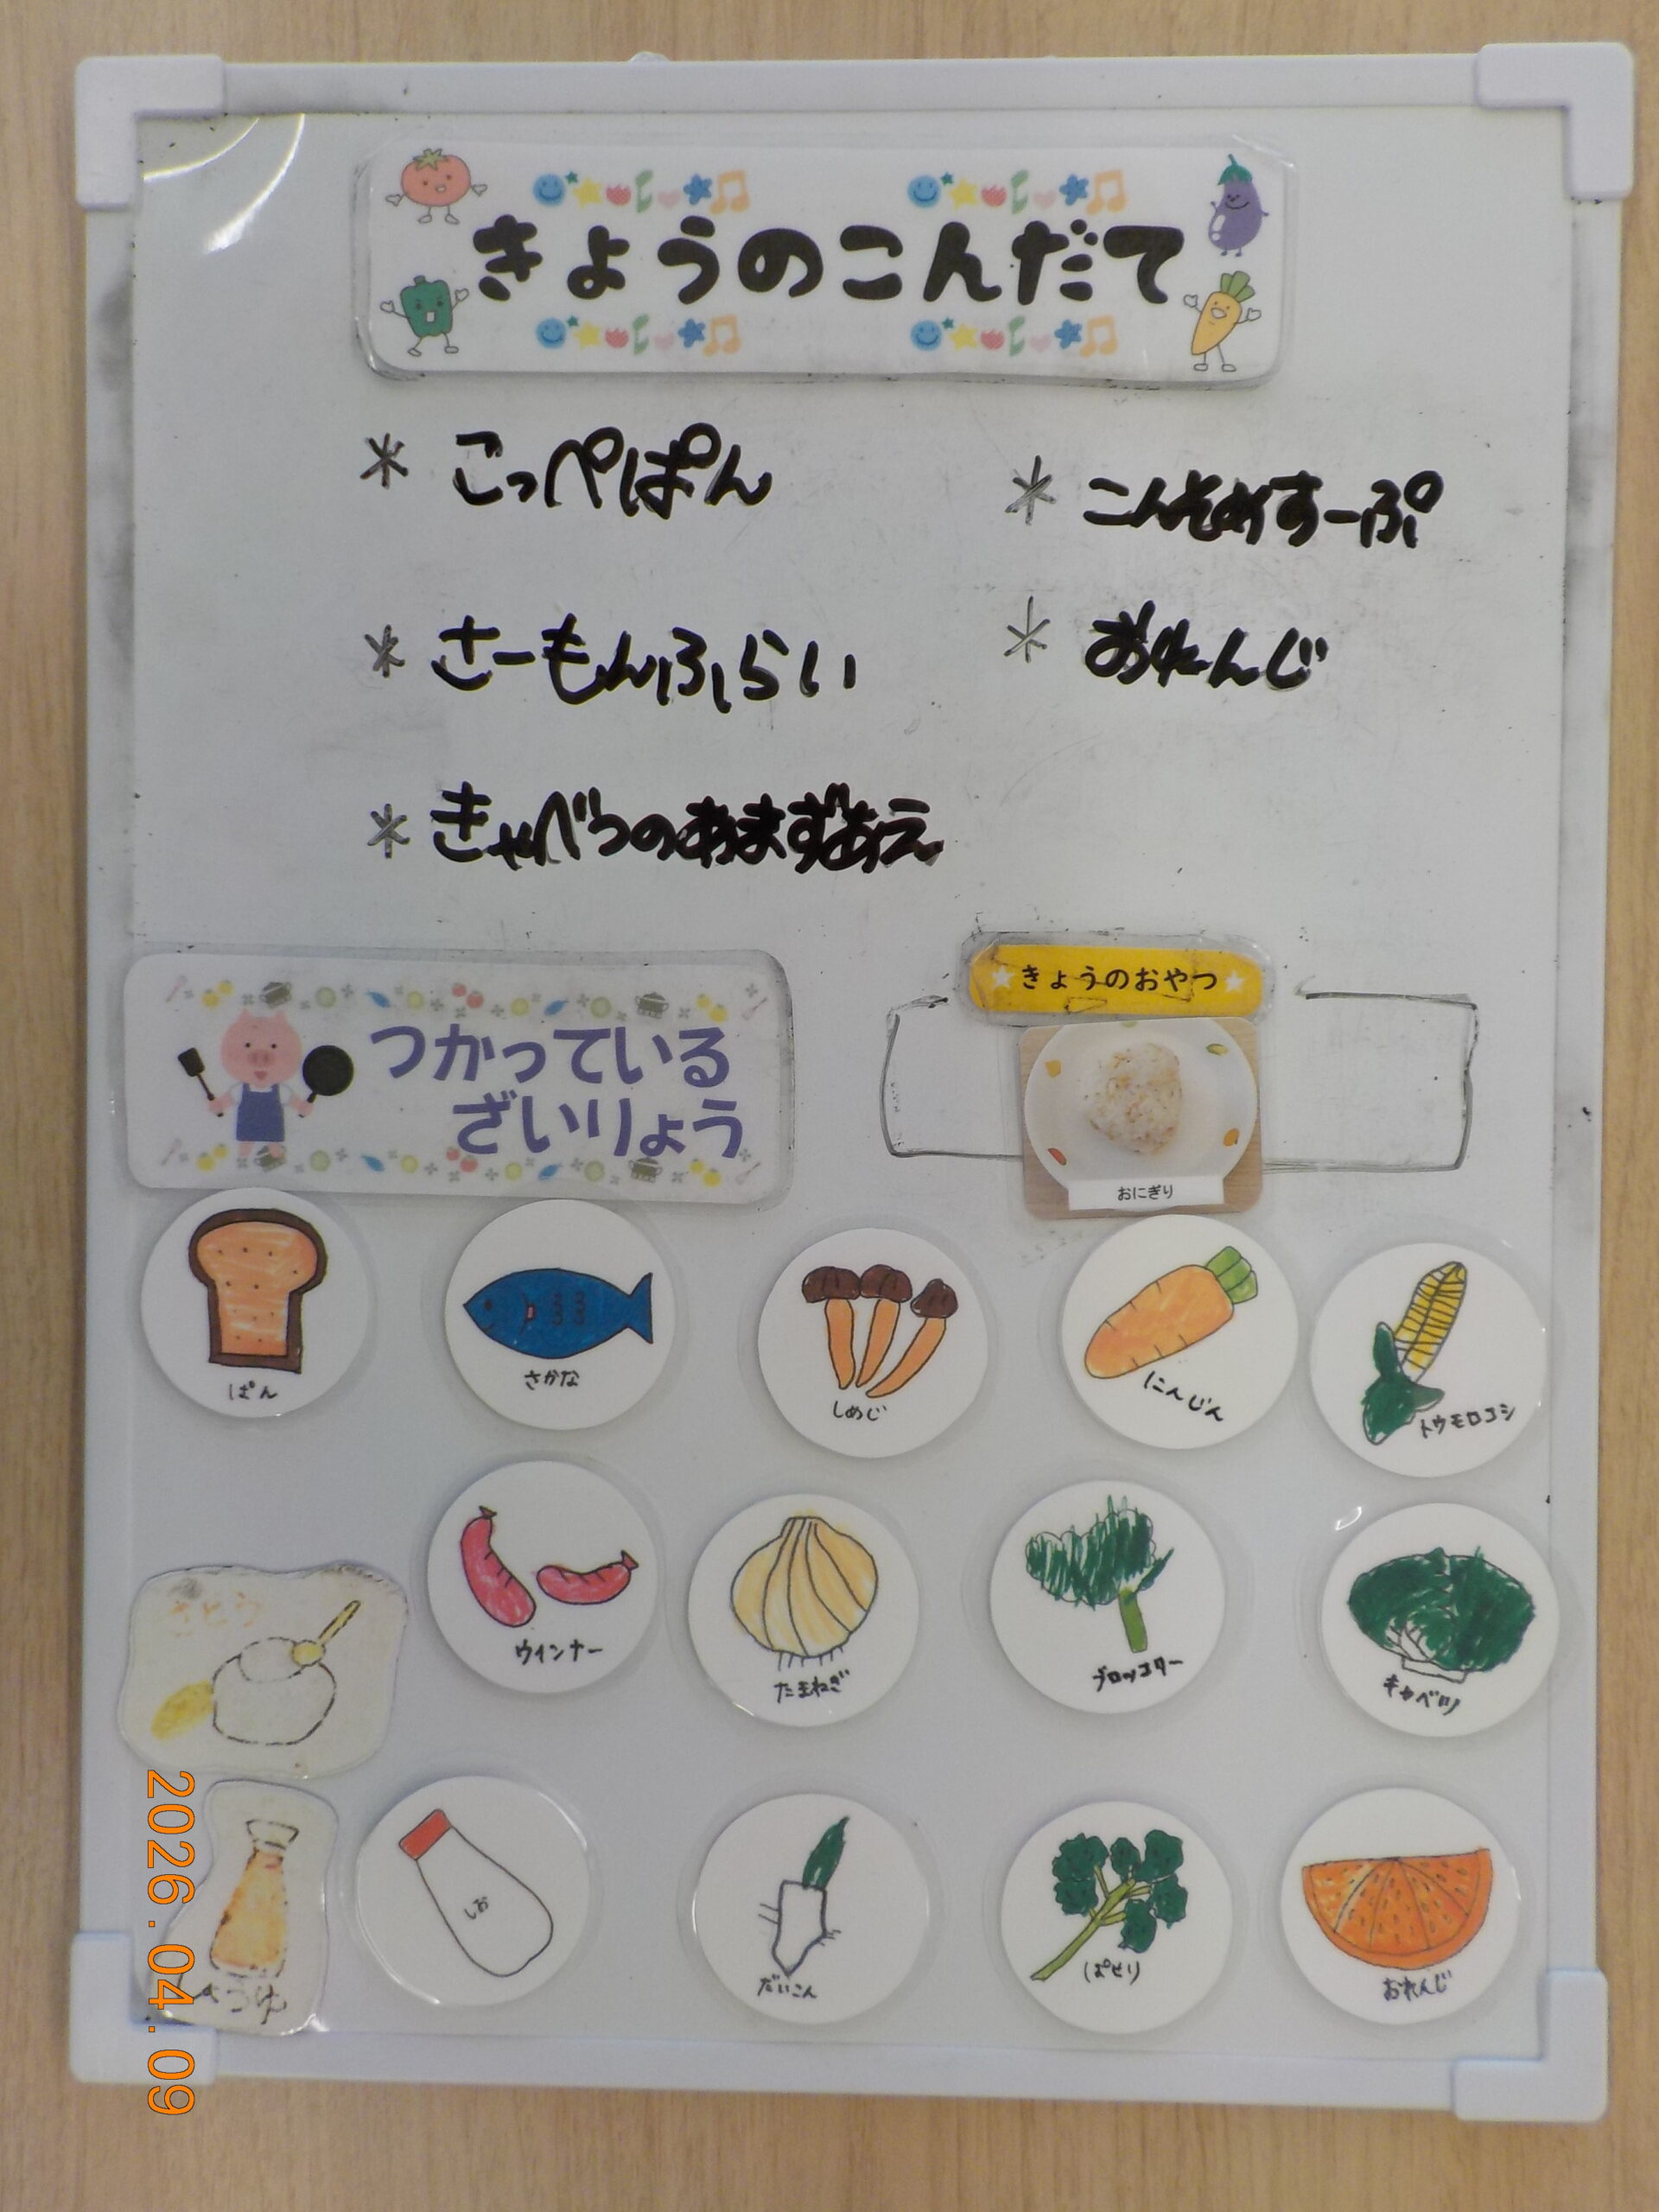 きょうのこんだて
* こっぺぱん
* さーもんふらい
* きゃべつのあまずあえ
* こんそめすーぷ
* おれんじ
つかっている
ざいりょう
★きょうのおやつ★
おにぎり
ぱん
さかな
しめじ
にんじん
トウモロコシ
さとう
ウインナー
たまねぎ
ブロッコリー
キャベツ
しょうゆ
しお
だいこん
ぱせり
おれんじ
2026.04.09